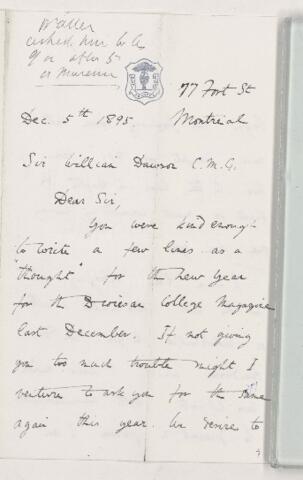 asked him to
or after 5
at Museum
77 Fort St
Montreal
Dec. 5th 1895
Sir William Dawson C.M.G.
Dear Sir,
You were kind enough
to write a few lines as a
"thought" for the New Year
for the Diocesan College Magazine
last December. If not giving
you too much trouble might I
venture to ask you for the same
again this year. We desire to